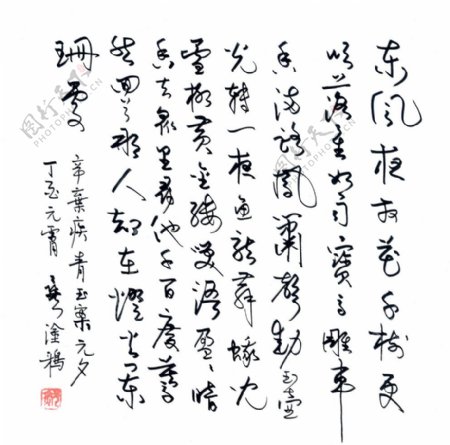 东风夜放花千树更
吹落星如雨寶马雕车
香满路凤箫声动玉壶
光转一夜鱼龙舞蛾儿
雪柳黄金缕笑语盈盈暗
香去众里寻他千百度蓦
然回首那人却在燈火阑
珊处
辛棄疾青玉案元夕
元宵 涂鸦